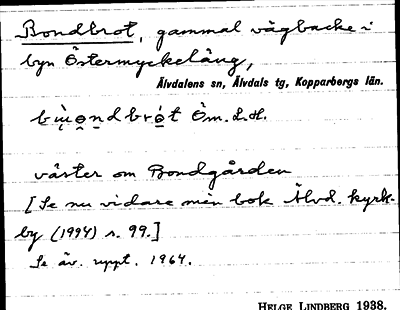 Bondbrot, gammal vägbacke i
byn Östermyckelång,
Älvdalens sn, Älvdals tg, Kopparbergs län.
Öm. L.H.
väster om Bondgården
[Se nu vidare min bok Älvd. kyrk-
by (1994) s. 99.]
Se äv. uppt. 1964.
HELGE LINDBERG 1938.